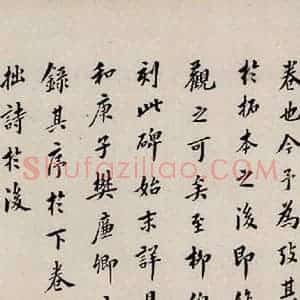 卷也今予為攷其
於拓本之後即
觀之可矣至柳
刻此碑始末詳
和庚子樊廉卿
錄其序於下卷
拙詩於後
Shufaziliao.com